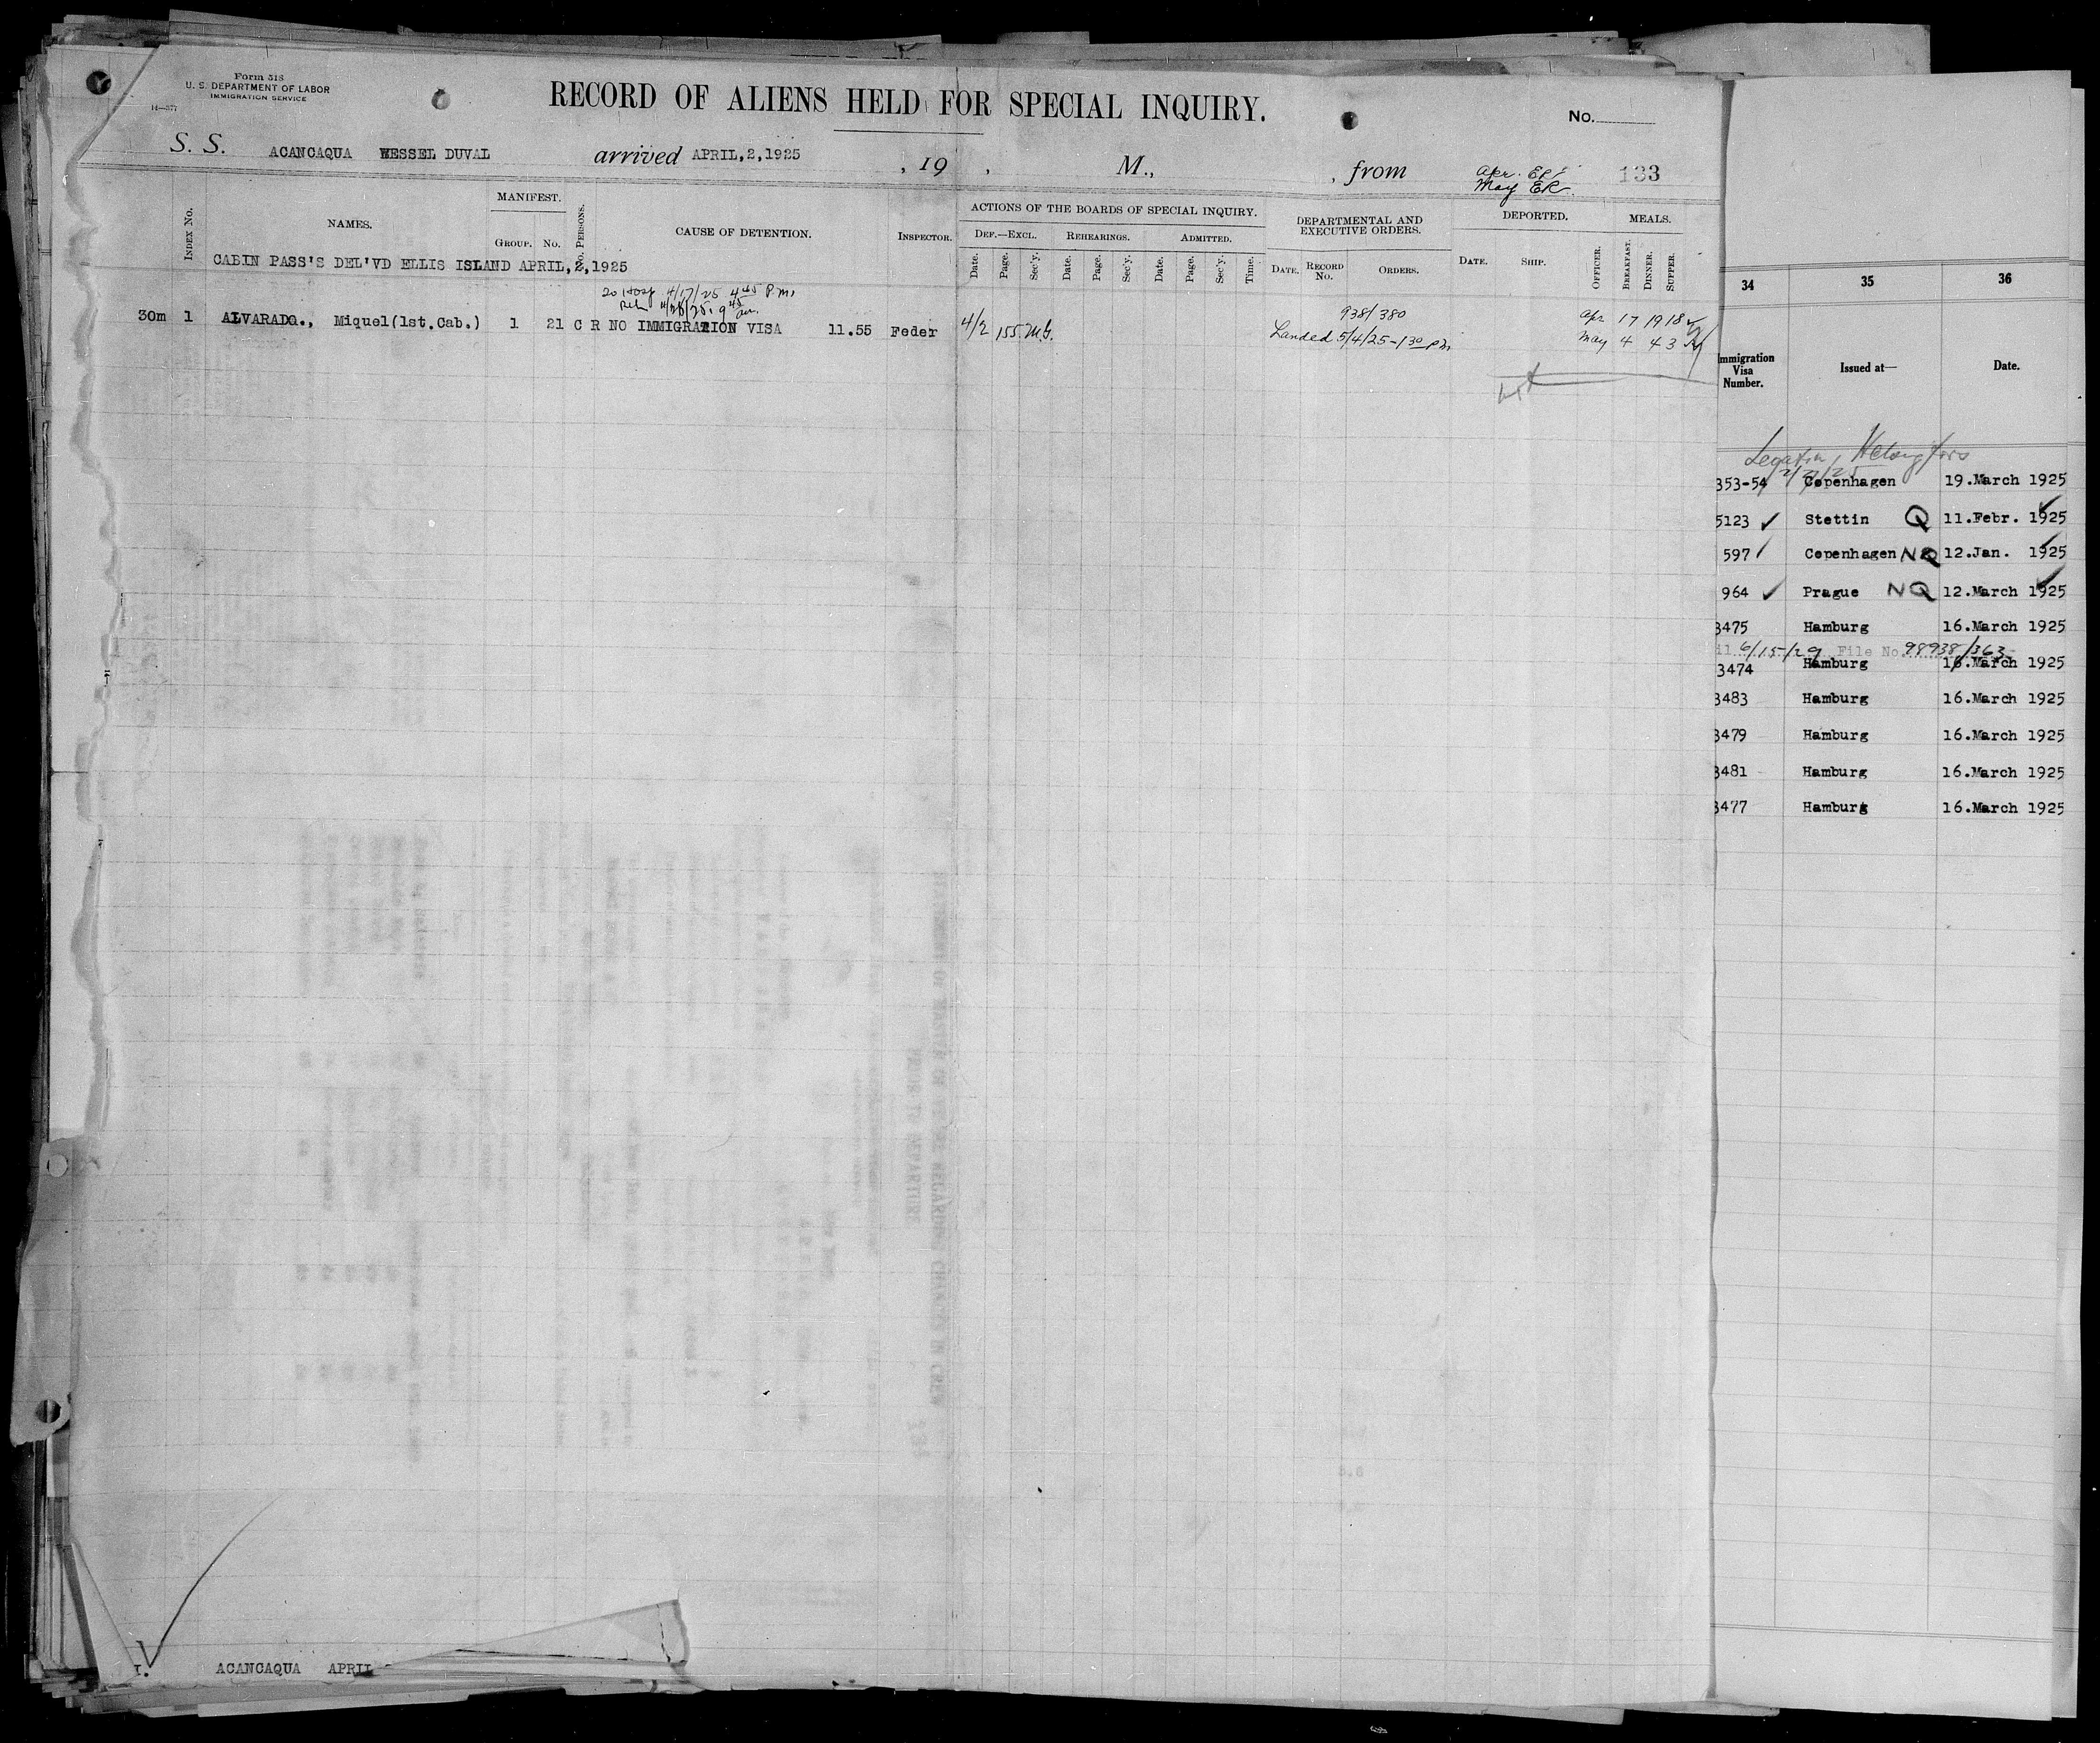 Form 518
U. S. DEPARTMENT OF LABOR
IMMIGRATION SERVICE
14—377
RECORD OF ALIENS HELD FOR SPECIAL INQUIRY.
No.
S. S. ACANCAQUA WESSEL DUVAL arrived APRIL,2,1925 , 19 , M., , from
Apr. EP.
May ER.
133
INDEX No.
NAMES.
MANIFEST.
GROUP. No.
No. PERSONS.
CAUSE OF DETENTION.
INSPECTOR.
ACTIONS OF THE BOARDS OF SPECIAL INQUIRY.
DEF.—EXCL. REHEARINGS. ADMITTED.
Date. Page. Sec'y. Date. Page. Sec'y. Date. Page. Sec'y. Time.
DEPARTMENTAL AND
EXECUTIVE ORDERS.
DATE. RECORD No. ORDERS.
DEPORTED.
DATE. SHIP.
MEALS.
OFFICER. BREAKFAST. DINNER. SUPPER.
CABIN PASS'S DEL'VD ELLIS ISLAND APRIL,2,1925
to Hosp 4/17/25 4 45 P.M.
Reh 4/28/25. 9 45 am.
30m 1 ALVARADO., Miquel(1st.Cab.) 1 21 C R NO IMMIGRATION VISA 11.55 Feder 4/2 155 M.G.
938/380
Landed 5/4/25-1 30 PM
Apr 17 19 18
May 4 4 3
34 35 36
Immigration
Visa
Number.
Issued at—
Date.
Legation, Helsingfors
2/27/25
353-54 Copenhagen 19.March 1925
5123 Stettin Q 11.Febr. 1925
597 Copenhagen NQ 12.Jan. 1925
964 Prague NQ 12.March 1925
3475 Hamburg 16.March 1925
6/15/29 File No. 98938/363
3474 Hamburg 16.March 1925
3483 Hamburg 16.March 1925
3479 Hamburg 16.March 1925
3481 Hamburg 16.March 1925
3477 Hamburg 16.March 1925
ACANCAQUA APRIL